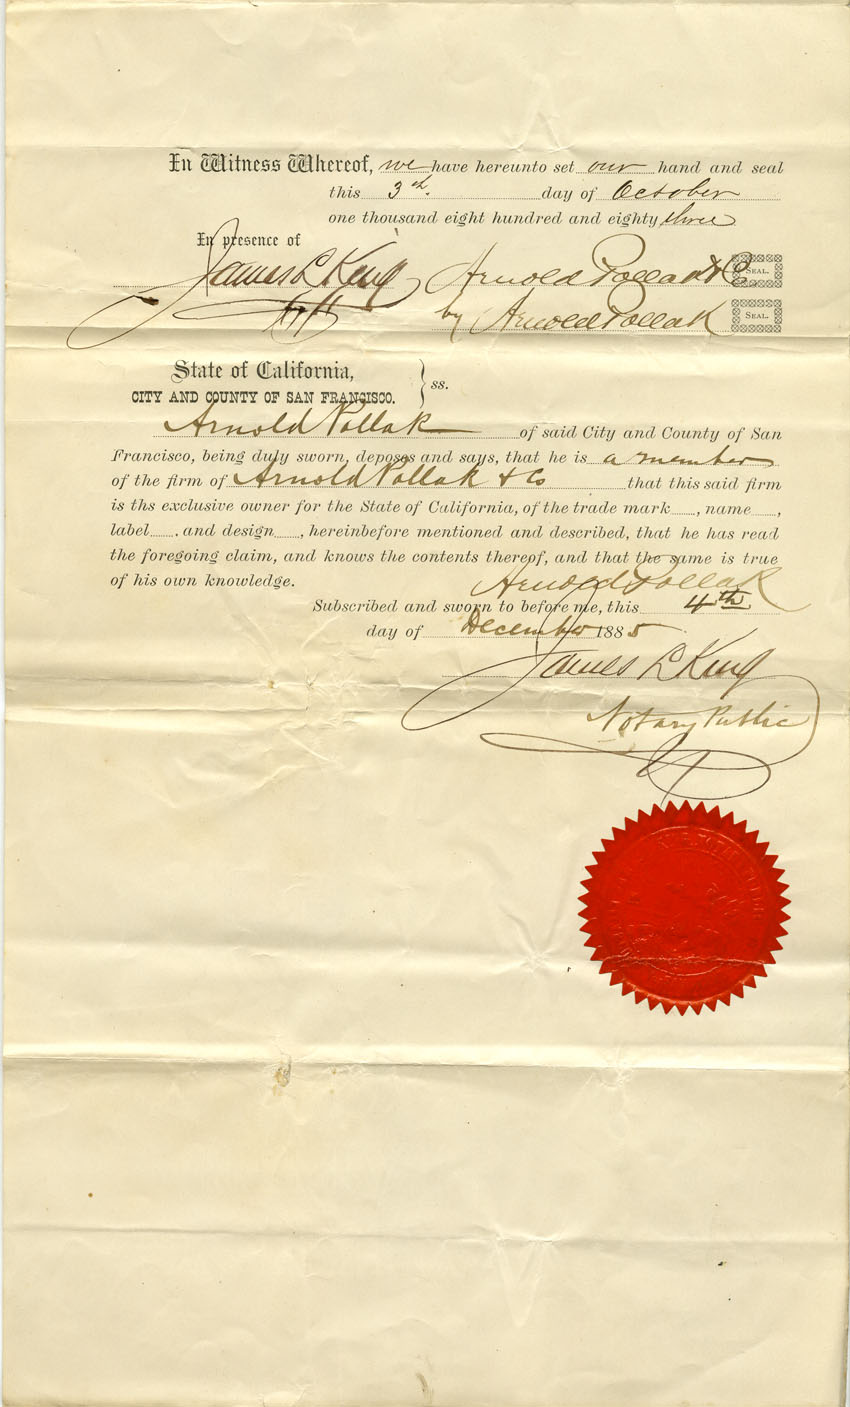 In Witness Whereof, we have hereunto set our hand and seal
this 3rd. day of October
one thousand eight hundred and eighty three
In presence of
James L King Arnold Pollak & Co SEAL.
by Arnold Pollak SEAL.
State of California,
CITY AND COUNTY OF SAN FRANCISCO. } ss.
Arnold Pollak of said City and County of San
Francisco, being duly sworn, deposes and says, that he is a member
of the firm of Arnold Pollak & Co that this said firm
is ths exclusive owner for the State of California, of the trade mark , name ,
label . and design , hereinbefore mentioned and described, that he has read
the foregoing claim, and knows the contents thereof, and that the same is true
of his own knowledge. Arnold Pollak
Subscribed and sworn to before me, this 4th
day of December 1885
James L King
Notary Public